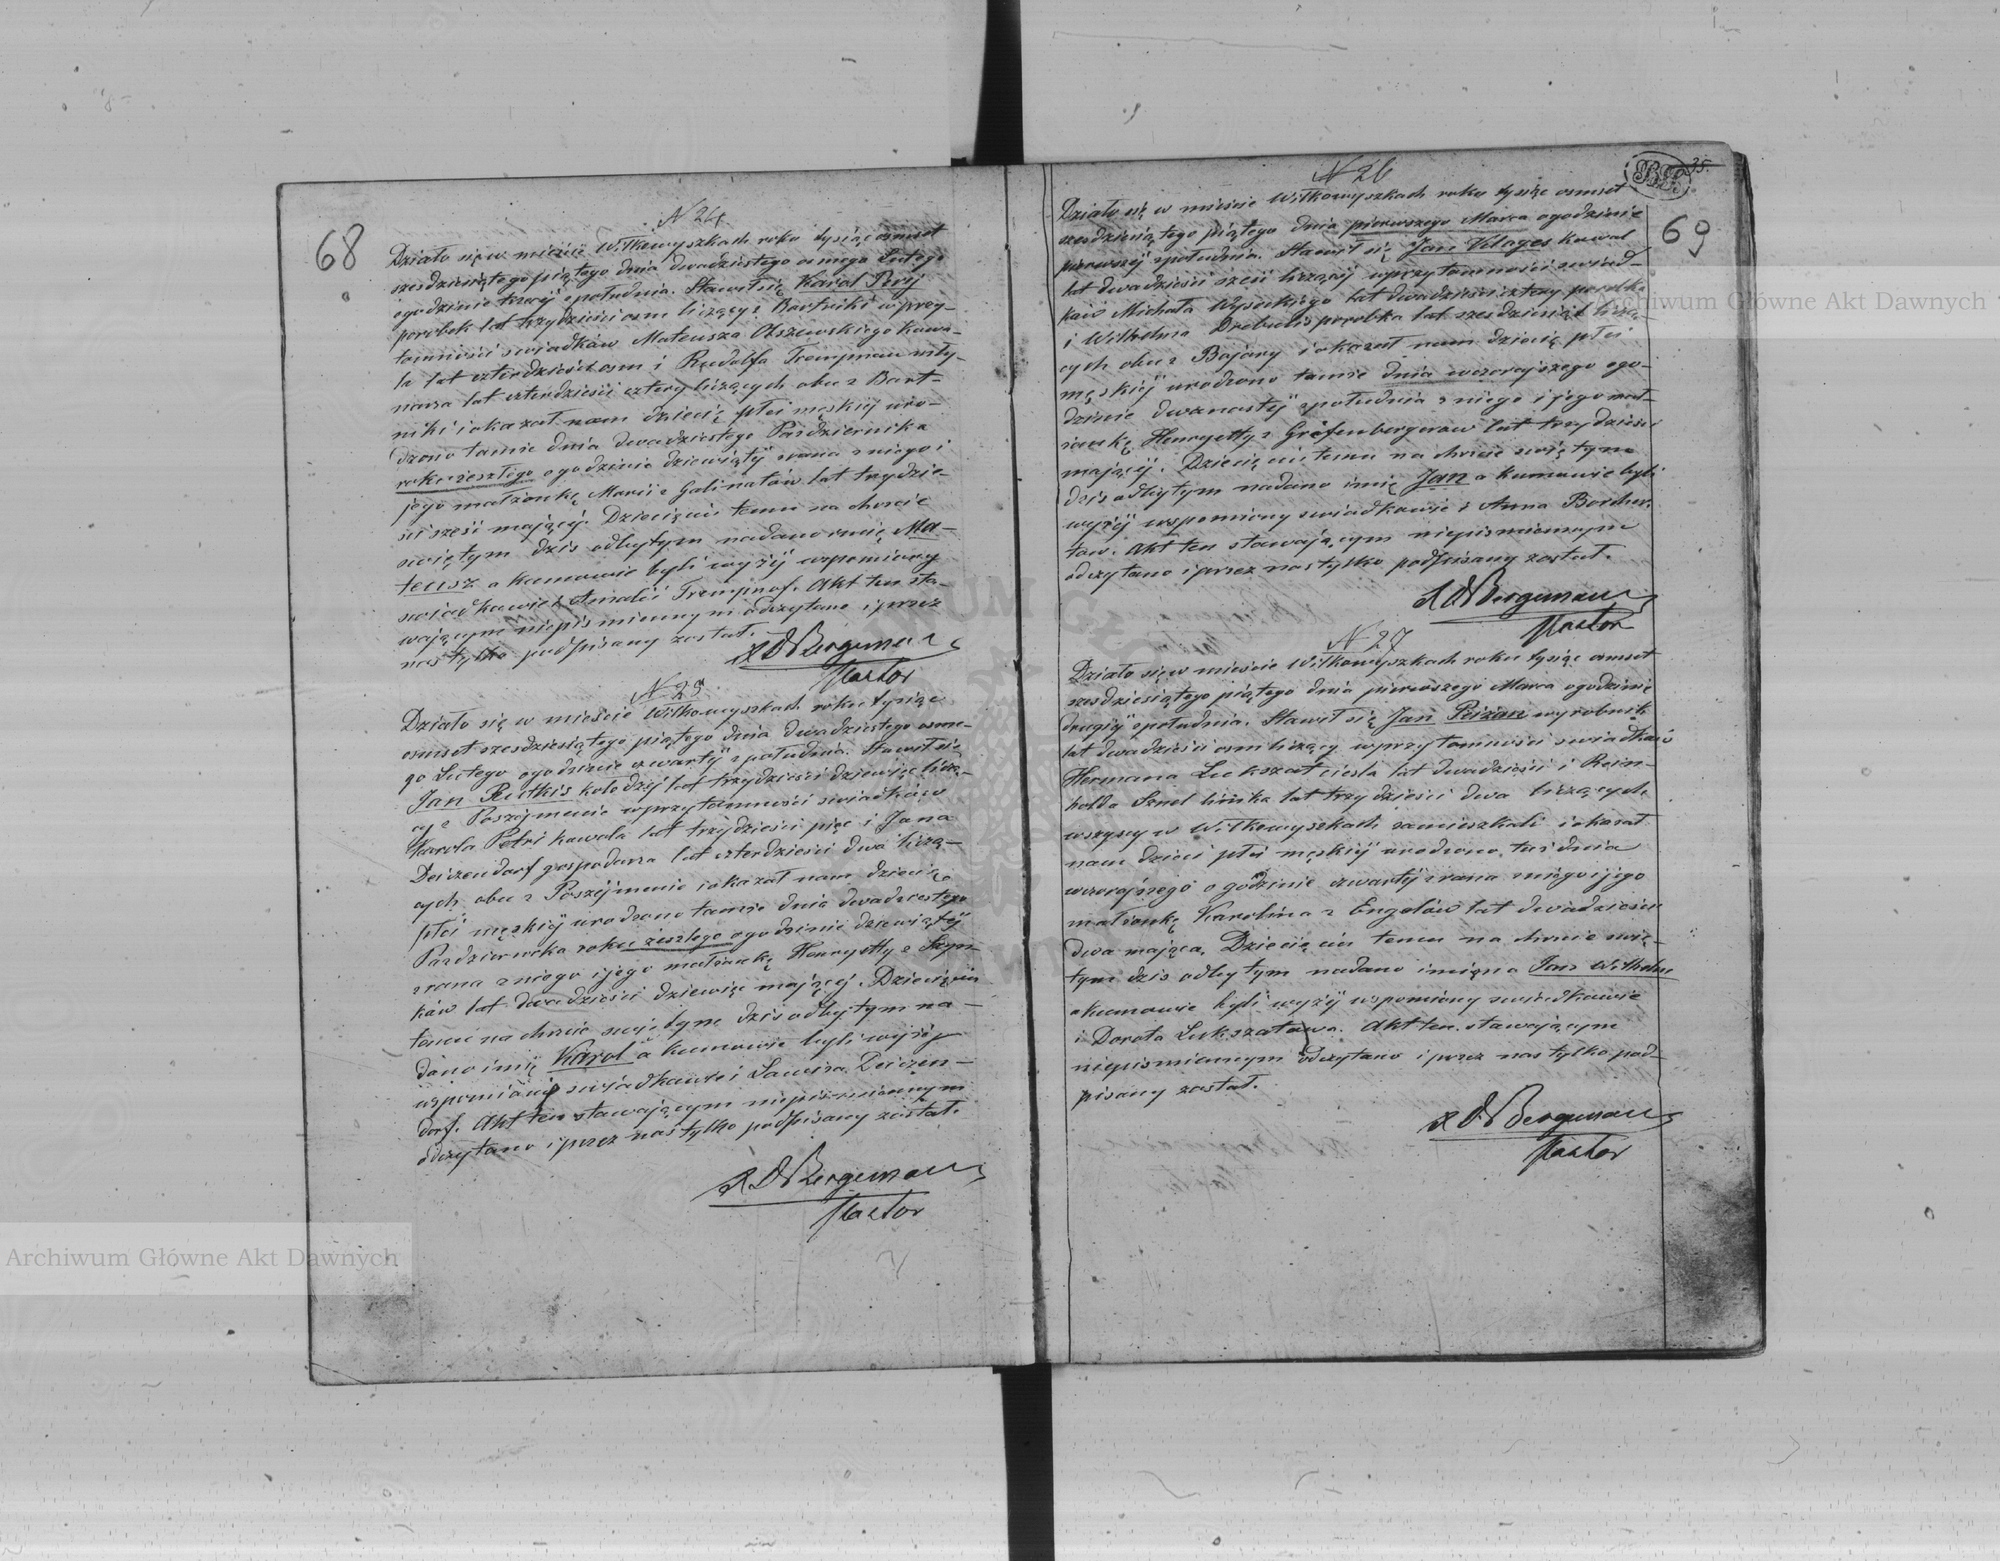 68
N 24
Działo się w mieście Wiłkowyszkach roku tysiąc osmset
szesdziesiątego piątego dnia dwudziestego osmego Lutego
ogodzinie trzeciej z południa. Stawił się Karol
parobek lat trzydzieści osm liczący z Bartnik w przy-
tomności swiadków Mateusza Olszewskiego kowa-
la lat czterdzieści osm i Rudolfa Trempnau mły-
narza lat czterdzieści cztery liczących obu z Bart-
niki i okazał nam dziecię płci męskiéj uro-
dzono tamże dnia dwudziestego Pazdziernika
roku zeszłego ogodzinie dziewiątéj zrana z niego i
jego małżonkę Marii z Galinatów lat trzydzie-
sci sześć mającéj. Dziecięciu temu na chrcie
swiętym dzis odbytym nadano imię Ma-
teusz a kumowie byli wyżéj wzpomniony
swiadkowie i Amalii Trempnof. Akt ten sta-
wającym niepismiennym odczytano i przez
nas tylko podpisany został.
Bergeman
Pastor
N 25
Działo się w mieście Wiłkowyszkach roku tysiąc
osmset szesdziesiątego piątego dnia dwudziestego osme-
go Lutego ogodzinie czwartéj z południa. Stawił się
Jan Rutkis kołodzéj lat trzydzieści dziewięć licz-
ący z Poszéjmenie wprzytomności swiadków
Karola Petri kowala lat trzydzieści pięć i Jana
Deiczendorf gospodarza lat czterdzieści dwa licz-
ących obu z Poszéjmenie i okazał nam dziecię
płci męskiéj urodzono tamże dnia dwudziestego
Pazdziernika roku zeszłego ogodzinie dziewiątéj
zrana z niego i jego małżonkę Henryetty z Szyn-
ków lat dwadzieści dziewięć mającéj. Dziecięciu
temu na chrcie swiętym dzis odbytym na-
dano imię Karol a kumowie byli wyżéj
wzpomniony swiadkowie i Lawiza Deiczen-
dorf. Akt ten stawającym niepismiennym
odczytano i przez nas tylko podpisany został.
Bergeman
Pastor
35.
69
N 26
Działo się w mieście Wiłkowyszkach roku tysiąc osmset
szesdziesiątego piątego dnia pierwszego Marca ogodzinie
pierwszéj z południa. Stawił się Jan Klages kowal
lat dwadzieści sześć liczący wprzytomności swiad-
ków Michała Wysockiego lat dwadzieści cztery parobka
i Wilhelma parobka lat szesdziesiąt licz-
ących obu z Bojary i okazał nam dziecię płci
męskiéj urodzono tamże dnia wczorajszego ogo-
dzinie dwanastéj z południa z niego i jego mał-
żonkę Henryetty z Grefenbergerow lat trzydzieści
mającéj. Dziecięciu temu na chrcie swiętym
dzis odbytym nadano imię Jan a kumowie byli
wyżéj wzpomniony swiadkowie i Anna
Akt ten stawającym niepismiennym
odczytano i przez nas tylko podpisany został.
Bergeman
Pastor
N 27
Działo się w mieście Wiłkowyszkach roku tysiąc osmset
szesdziesiątego piątego dnia pierwszego Marca ogodzinie
drugiéj z południa. Stawił się Jan wyrobnik
lat dwadzieści osm liczący wprzytomności swiadków
Hermana Lukszat ciesla lat dwadzieści i Rein-
holda Sznel lat trzydzieści dwa liczących
wszyscy w Wiłkowyszkach zamieszkali i okazał
nam dzieci płci męskiéj urodzono tuż dnia
wczorajszego o godzinie czwartéj zrana z niego i jego
małżonkę Karolina z Engelów lat dwadzieście
dwa mająca. Dziecięciu temu na chrcie swię-
tym dzis odbytym nadano imięna Jan Wilhelm
a kumowie byli wyżéj wzpomniony swiadkowie
i Dorota Lukszatowa. Akt ten stawającym
niepismiennym odczytano i przez nas tylko pod-
pisany został.
Bergeman
Pastor
Archiwum Główne Akt Dawnych
Archiwum Główne Akt Dawnych